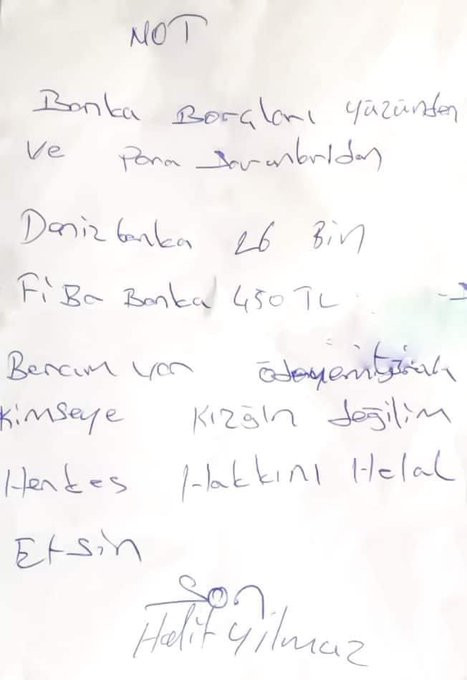 NOT
Banka Borçları yüzünden
ve Para
Denizbanka 26 Bin
FiBa Banka 450 TL
Borcum var
kimseye kızgın değilim
Herkes Hakkını Helal
Etsin
Son
Halit Yılmaz